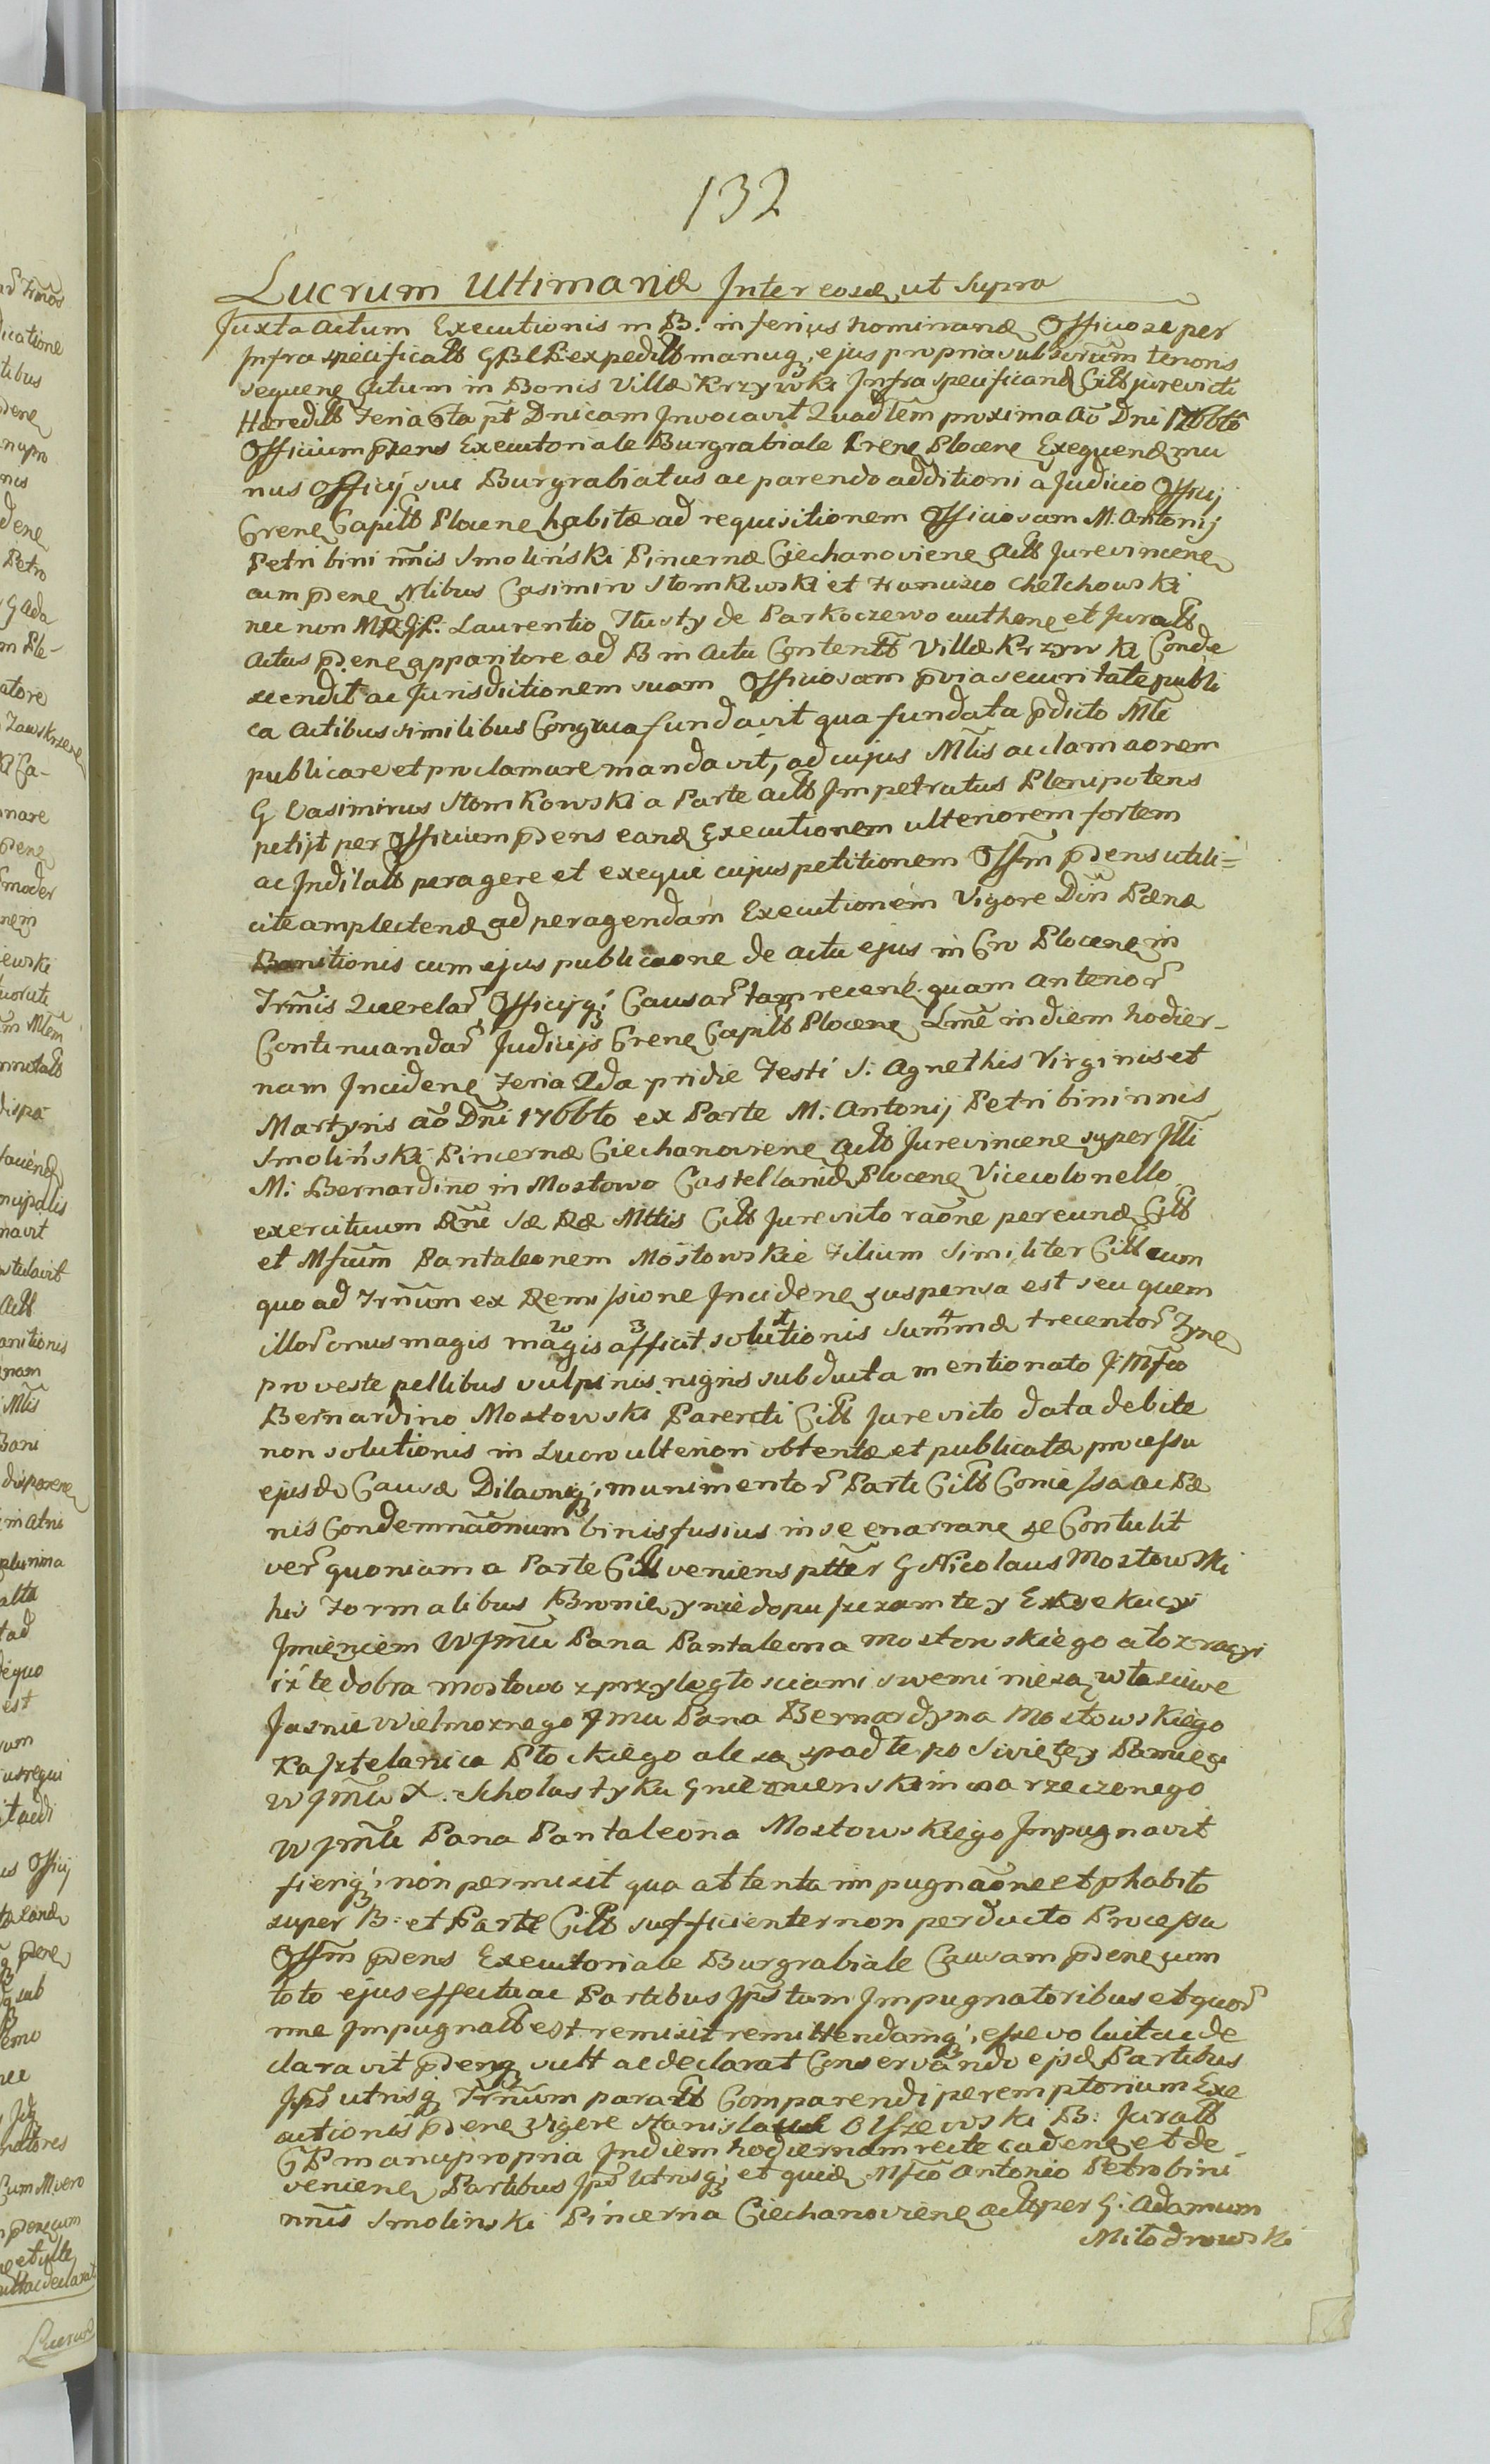 132
Lucrum Ultimariæ Inter eosdē ut Supra
Juxta Actum Executionis m B. inferius nominanđ Officiose per
Infra specificatt GBCP. expeditt manuq3 ejus propria subscriptum tenoris
sequenē Actum in Bonis Villæ Krzywki Infra specificand Citt jurevicti
Hæreditt Feria 6ta pt Dnicam Invocavit Quadlem proxima Ao Dni 1766to
Officium pdens Executoriale Burgrabiale Crenē Plocenē Exequendæ mu
nus Officij sui Burgrabiatus ac parendo additioni a Judicio Officij
Crenē Capitt Plocenē habitæ ad requisitionem Officiosam M. Antonij
Petri bini nnis Smoliński Pincernæ Ciechanovienē Actt Jurevincenē
cum pdenē Nlibus Casimiro Stomkowski et Francisco Chełchowski
nec non MRGP. Laurentio Tłusty de Parkoczewo authenē et Juratt
Actus pdenē apparitore ad B in Actu Contentt Villæ Krzywki Conde
scendit ac Jurisdictionem suam Officiosam pvia securitate publi
ca Actibus similibus Congrua fundavit qua fundata pdicto Mlē
publicare et proclamare mandavit, ad cujus Mlis acclamaonem
G Casimirus Stomkowski a Parte Actt Impetratus Plenipotens
petijt per Officium pdens eand Executionem ulteriorem fortem
ac Indilatt peragere et exequi cujus petitionem Offm pdens utili=
cite amplectendæ ad peragendam Executionem Vigore Din Pænæ
Banitionis cum ejus publicaone de actu ejus in Cro Plocenē in
Trmis Querelar Officijq3 Causar tam recenē quam anterior
Continuandar Judicijs Crenē Capitt Plocenē Lmē in diem hodier-
nam Incidenē Feria 2da pridie Festi S. Agnethis Virginis et
Martyris Ao Dni 1766to ex Parte M. Antonij Petri bini nnis
Smoliński Pincernæ Ciechanovienē Actt Jurevincenē super Illi
M. Bernardino in Mostowo Castellanidæ Plocenē Vicecolonello
exercituum Rni Sæ Ræ Mttis Citt Jurevicto raone per eund Citt
et Mfcum Pantaleonem Mostowskie Filium Similiter Citt cum
quo ad Trnum ex Remissione Incidenē suspensa est seu quem
illor onus magis magis afficit solutionis Summæ trecentor Zrnē
2 3 1 4
pro veste pellibus vulpinis nigris subducta mentionato J Mfco
Bernardino Mostowski Parenti Citt Jurevicto data debite
non solutionis in Lucro ulteriori obtentæ et publicatæ processu
ejusd Causæ Dilaonq3 munimentor Parti Citt Concessa ac Pæ
nis Condemnaonum binis fusius in se enarranē se Contulit
ver quoniam a Parte Citt veniens ptter G Nicolaus Mostowski
his Formalibus Bronię y nie dopuszczam tey Exekucyi
Imieniem WJmci Pana Pantaleona Mostowskiego a to z racyi
iż te dobra Mostowo z przyległosciami swemi nie są własciwe
Jasnie Wielmoznego Jmci Pana Bernardyna Mostowskiego
Kasztelanica Płockiego ale są spadłe po Swiętey Pamięci
WJmci X. Scholastyku Gnieznienskim na rzeczonego
WJmci Pana Pantaleona Mostowskiego Impugnavit
fieriq3 non permisit qua attenta impugnaone et phabito
super B. et Parte Citt sufficienter non perducto Processu
Offm pdens Executoriale Burgrabiale Causam pdenē cum
toto ejus effectu ac Partibus Ips tam Impugnatoribus et quor
nne Impugnatt est remisit remittendamq3 esse voluit ac de
claravit pdenq3 vult ac declarat Conservando ejsd Partibus
Ips utrisq3 Trnum paratt Comparendi peremptorium Exe
cutionis pdenē Vigere Stanislaus Olszewski B. Juratt
GP manu propria In diem hodiernam recte cadenē et de-
venienē Partibus Ips Utrisq3 et quid Mfco Antonio Petro bini
nnis Smolinski Pincerna Ciechanovienē Actt per G. Adamum
Miłodrowski